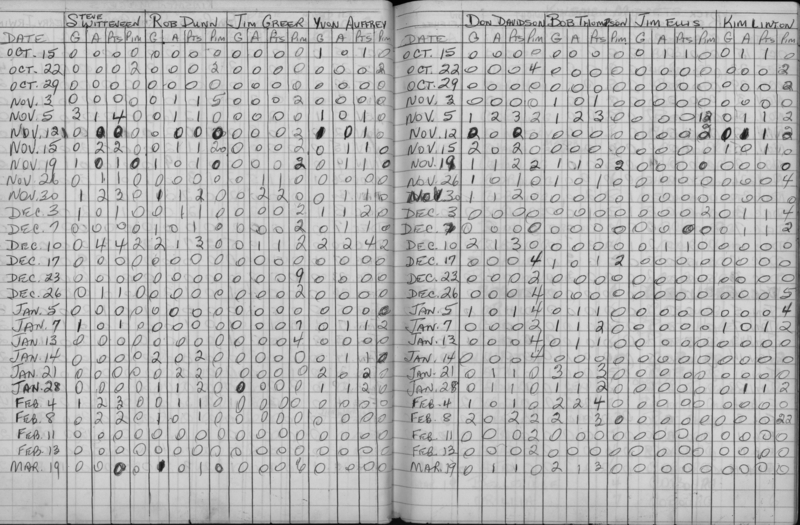 STEVE
ROB DUNN JIM GREER YVON
DATE G A Pts Pim G A Pts Pim G A Pts Pim G A Pts Pim
OCT. 15 0 0 0 0 0 0 0 0 0 0 0 0 1 0 1 0
OCT. 22 0 0 0 2 0 0 0 2 0 0 0 0 0 0 0 2
OCT. 29 0 0 0 0 0 0 0 0 0 0 0 0 0 0 0 0
NOV. 3 0 0 0 0 0 1 1 5 0 0 0 2 0 0 0 0
NOV. 5 3 1 4 0 0 1 1 0 0 0 0 0 1 0 1 0
NOV. 12 0 0 0 0 0 0 0 2 1 0 1 0
NOV. 15 0 2 2 0 0 1 1 2 0 0 0 0 0 1 1 0
NOV. 19 1 0 1 0 1 0 1 0 0 0 0 2 0 1 1 0
NOV. 26 0 1 1 0 0 0 0 0 0 1 1 0 0 0 0 0
NOV. 30 1 2 3 0 1 1 2 0 0 2 2 0 0 1 1 0
DEC. 3 1 0 1 0 0 1 1 0 0 0 0 2 1 1 2 0
DEC. 7 0 0 0 0 1 0 1 0 0 0 0 2 0 1 1 0
DEC. 10 0 4 4 2 2 1 3 0 0 1 1 2 2 2 4 2
DEC. 17 0 0 0 0 0 0 0 0 0 0 0 0 0 0 0 0
DEC. 23 0 0 0 0 0 0 0 0 0 0 0 9 0 0 0 0
DEC. 26 0 1 1 0 0 0 0 0 0 0 0 2 0 0 0 0
JAN. 5 0 0 0 0 0 0 0 0 0 0 0 0 0 0 0 0
JAN. 7 1 0 1 0 0 0 0 0 0 0 0 0 1 1 2
JAN. 13 0 0 0 0 0 0 0 0 0 0 0 4 0 0 0 0
JAN. 14 0 0 0 0 2 0 2 0 0 0 0 0 0 1 1 0
JAN. 21 0 0 0 0 0 2 2 0 0 0 0 0 2 0 2 0
JAN. 28 0 0 0 0 1 1 2 0 0 0 0 0 1 1 2 0
FEB. 4 1 2 3 0 0 1 1 0 0 0 0 0 0 0 0 0
FEB. 8 0 2 2 0 1 0 1 0 0 0 0 0 0 0 0 0
FEB. 11 0 0 0 0 0 0 0 0 0 0 0 0 0 0 0 0
FEB. 13 0 0 0 0 0 0 0 0 0 0 0 0 0 0 0 0
MAR. 19 0 0 0 0 0 1 0 0 0 0 6 0 0 0 0
DON DAVIDSON BOB THOMPSON JIM ELLIS KIM LINTON
DATE G A Pts Pim G A Pts Pim G A Pts Pim G A Pts Pim
OCT. 15 0 0 0 0 0 0 0 0 0 1 1 0 0 1 1 0
OCT. 22 0 0 0 4 0 0 0 0 0 0 0 0 0 0 0 2
OCT. 29 0 0 0 0 0 0 0 0 0 0 0 0 0 0 0 2
NOV. 3 0 0 0 0 1 0 1 0 0 0 0 0 0 0 0 0
NOV. 5 1 2 3 2 1 2 3 0 0 0 0 12 0 1 1 2
NOV. 12 2 0 2 0 0 0 0 0 0 0 0 2 0 1 1 2
NOV. 15 2 0 2 0 0 0 0 0 0 0 0 0 1 0 1 0
NOV. 19 0 1 1 2 2 1 1 2 2 0 0 0 0 0 0 0
NOV. 26 1 0 1 0 1 0 1 0 0 0 0 0 0 0 0 4
NOV 30 1 1 2 0 0 0 0 0 0 0 0 0 0 0 0 0
DEC. 3 0 0 0 0 0 0 0 0 0 0 0 2 0 1 1 4
DEC. 7 0 0 0 0 0 0 0 0 0 0 0 0 0 1 1 2
DEC. 10 2 1 3 0 0 0 0 0 0 1 1 0 0 0 0 0
DEC. 17 0 0 0 4 1 0 1 2 0 0 0 0 0 0 0 0
DEC. 23 0 0 0 2 0 0 0 0 0 0 0 0 0 0 0 0
DEC. 26 0 0 0 4 0 0 0 0 0 0 0 0 0 0 0 5
JAN. 5 1 0 1 4 0 1 1 0 0 0 0 0 0 0 0 4
JAN. 7 0 0 0 2 1 1 2 0 0 0 0 0 1 0 1 2
JAN. 13 0 0 0 4 0 1 1 0 0 0 0 0 0 0 0 0
JAN. 14 0 0 0 4 0 0 0 0 0 0 0 0 0 0 0 0
JAN. 21 0 1 1 0 3 0 3 0 0 0 0 0 0 0 0 0
JAN. 28 0 1 1 0 1 1 2 0 0 0 0 0 0 1 1 2
FEB. 4 1 0 1 0 2 2 4 0 0 0 0 0 0 0 0 0
FEB. 8 2 0 2 2 2 1 3 0 0 0 0 0 0 0 0 22
FEB. 11 0 0 0 2 0 0 0 0 0 0 0 0 0 0 0 0
FEB. 13 0 0 0 2 0 0 0 0 0 0 0 0 0 0 0 0
MAR. 19 0 1 1 0 2 1 3 0 0 0 0 0 0 0 0 0